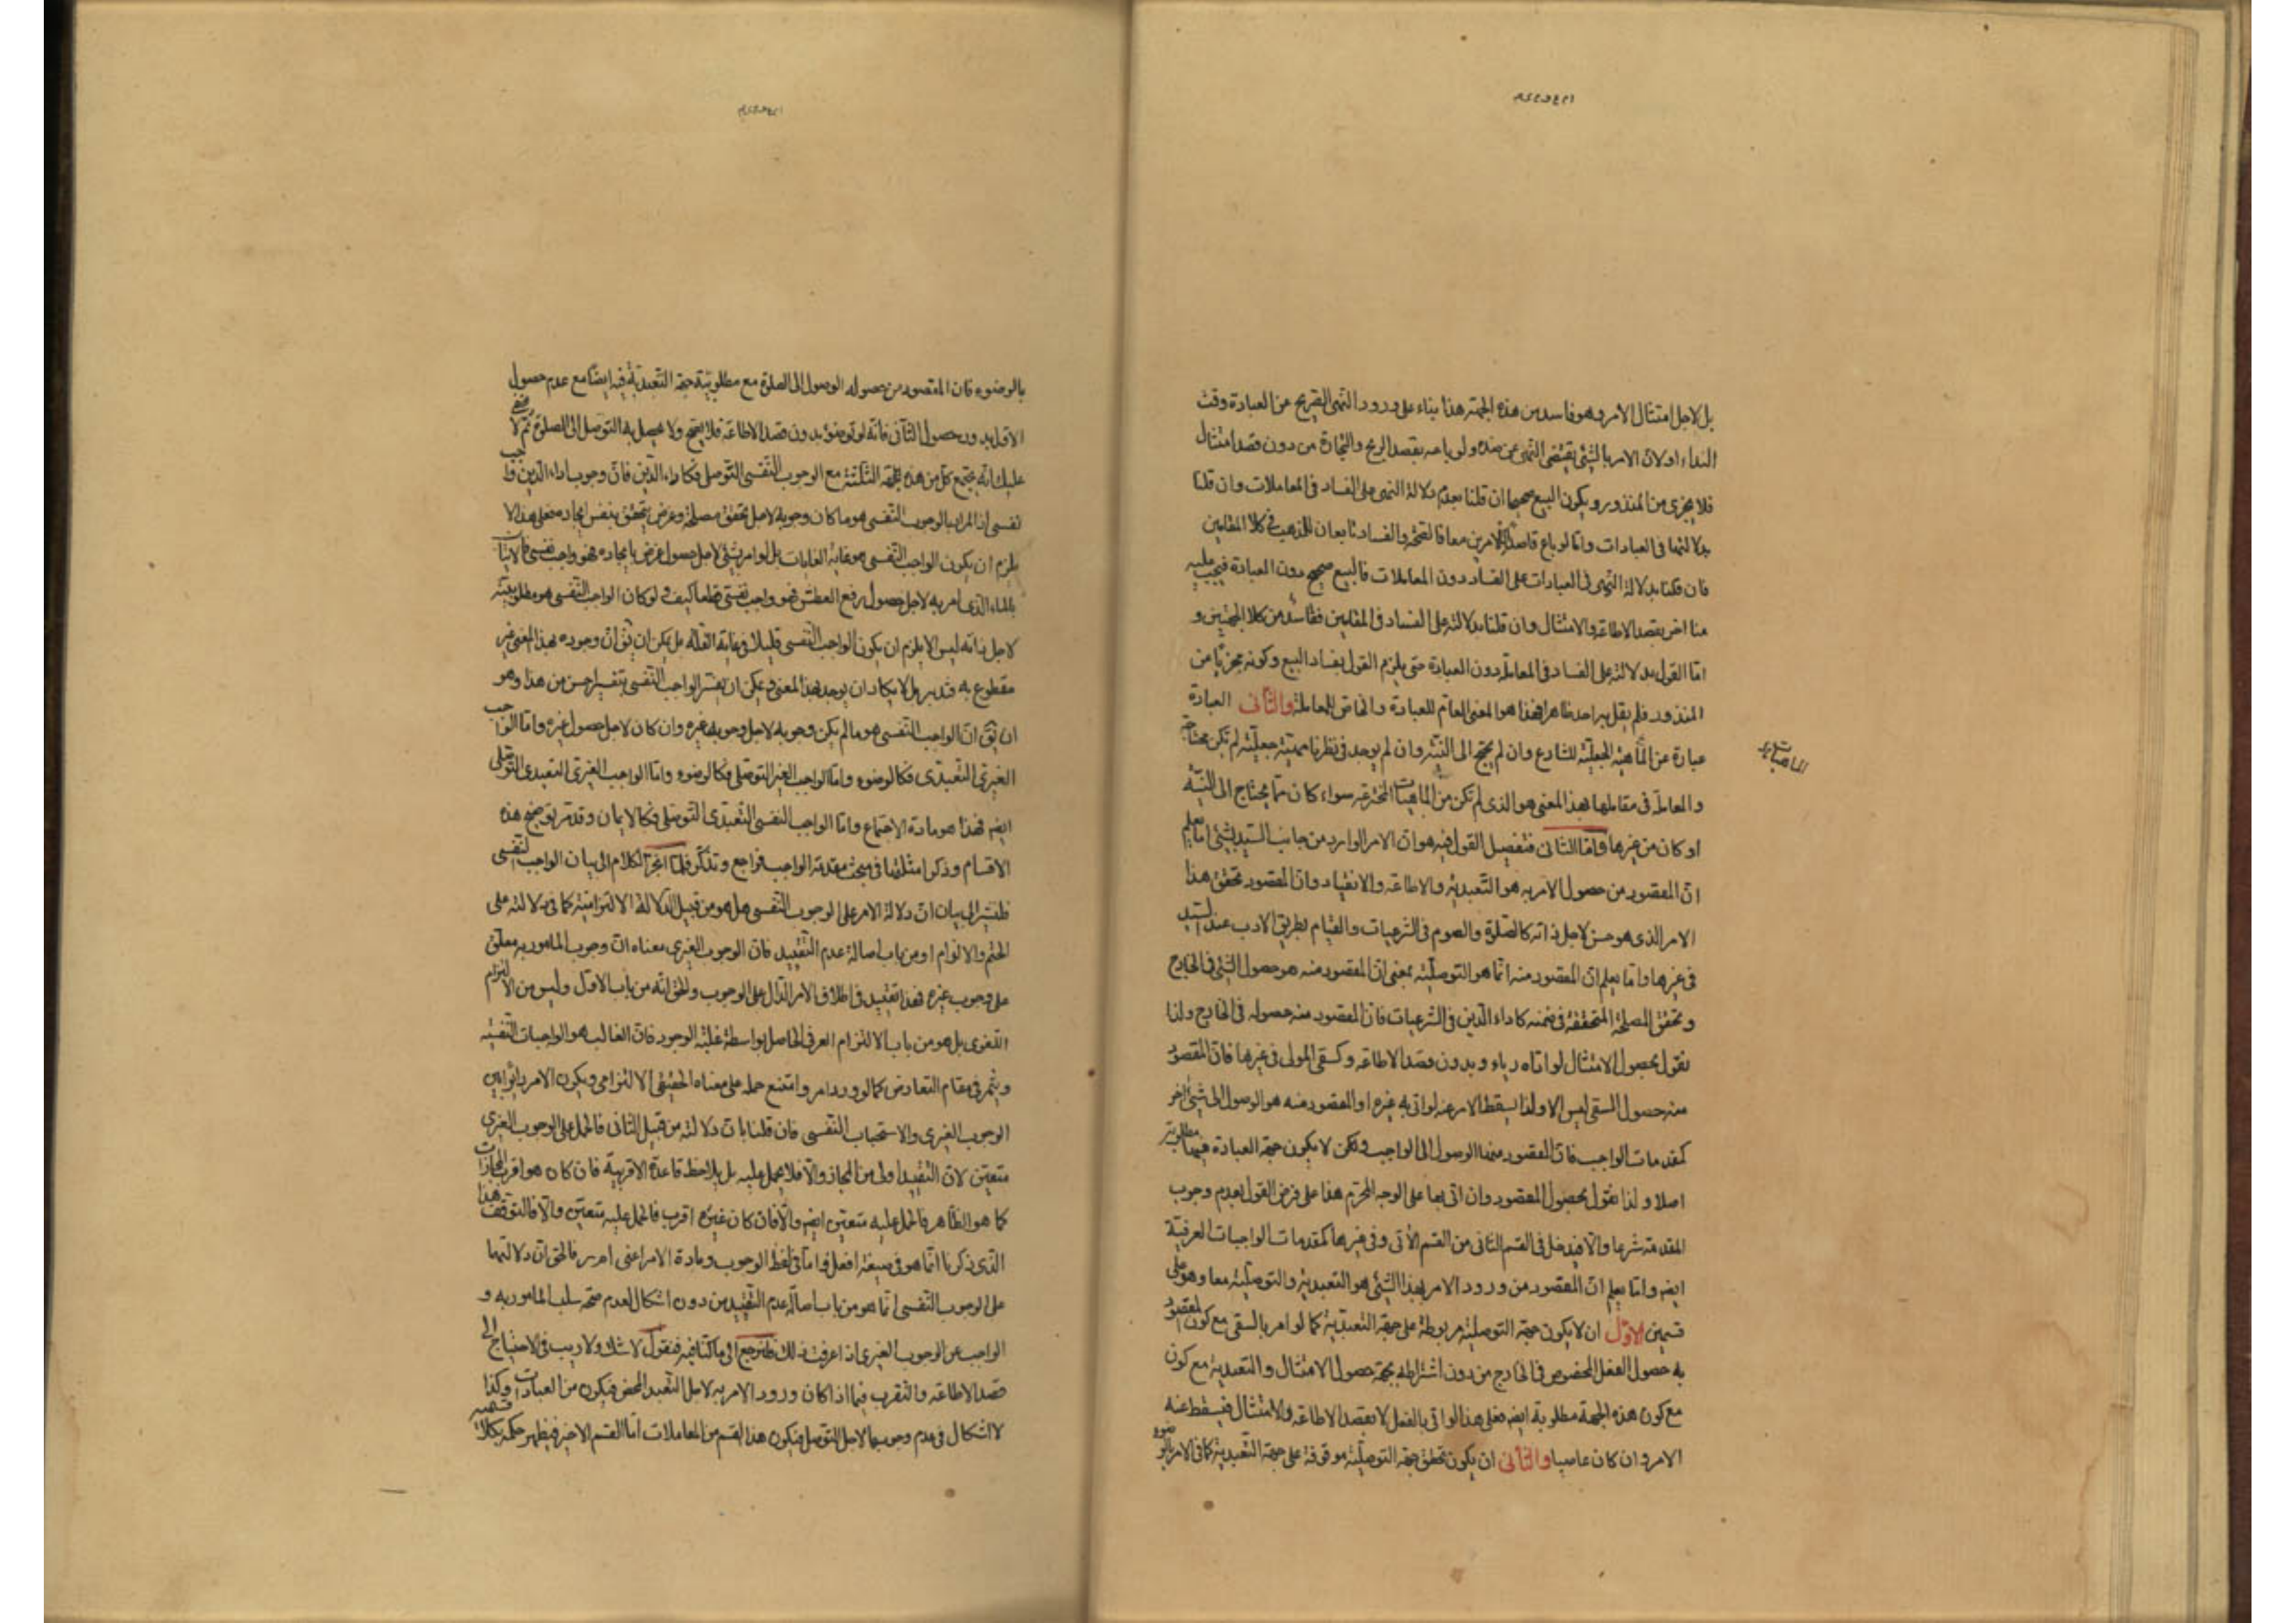 بل لاجل امتثال الامر وهو فاسد من هذه الجهة هذا بناء على ورود النهى الصريح عن العبادة وقت
النداء او لان الامر بالشئ يقتضى النهى عن ضده ولو باعه بقصد الربح والتجارة من دون قصد امتثال
فلا يجزى من المنذور ويكون البيع صحيحا ان قلنا بعدم دلالة النهى على الفساد فى المعاملات وان قلنا
بدلالتها فى العبادات واما لو باع قاصدا للامرين معا فالصحة والفساد تابعان للمذهب فى كلا المقامين
فان قلنا بدلالة النهى فى العبادات على الفساد دون المعاملات فالبيع صحيح دون العبادة فيجب عليه
منا اخر بقصد الاطاعة والامتثال وان قلنا بدلالته على الفساد فى المقامين ففاسد من كلا الجهتين و
اما القول بدلالته على الفساد فى المعاملة دون العبادة حتى يلزم القول بفساد البيع وكونه مجزيا من
المنذور فلم يقل به احد ظاهرا فهذا هو المعنى العام للعبادة والخاص للمعاملة والثانى العبادة
عبارة عن الماهية الجعلية للشارع وان لم يحتج الى النية وان لم يوجد فى نظرنا مهية جعلية لم تكن محتاجة
والمعاملة فى مقابلها بهذا المعنى هو الذى لم تكن من الماهيات المخترعة سواء كان مما يحتاج الى النية
او كان من غيرها واما الثانى فتفصيل القول فيه هو ان الامر الوارد من جانب السيد بشئ اما يعلم
ان المقصود من حصول الامر به هو التعبدية والاطاعة والانقياد وان المقصود تحقق هذا
الامر الذى هو حسن لاجل ذاته كالصلوة والصوم فى الشرعيات والقيام بطريق الادب عند السيد
فى غيرها واما يعلم ان المقصود منه انما هو التوصلية بمعنى ان المقصود منه هو حصول الشئ فى الخارج
وتحقق المصلحة المتحققة فى ضمنه كاداء الدين فى الشرعيات فان المقصود منه حصوله فى الخارج ولذا
نقول بحصول الامتثال لو اتاه رياء وبدون قصد الاطاعة وكسقى المولى فى غيرها فان المقصود
منه حصول السقى ليس الا ولذا يسقط الامر عنه لو اتى به غيره او المقصود منه هو الوصول الى شئ اخر
كمقدمات الواجب فان المقصود منها الوصول الى الواجب ولكن لا يكون جهة العبادة فيها مطلوبة
اصلا ولذا نقول بحصول المقصود وان اتى بها على الوجه المحرم هذا على فرض القول بعدم وجوب
المقدمة شرعا والا فيدخل فى القسم الثانى من القسم الآتى وفى غيرها كمقدمات الواجبات العرفية
ايضا واما يعلم ان المقصود من ورود الامر بهذا الشئ هو التعبدية والتوصلية معا وهو على
قسمين الاول ان لا يكون جهة التوصلية مربوطة على جهة التعبدية كما لو امر بالسقى مع كون المقصود
به حصول الفعل المخصوص فى الخارج من دون اشتراطه بجهة حصول الامتثال والتعبدية مع كون
مع كون هذه الجهة مطلوبة ايضا فعلى هذا لو اتى بالفعل لا بقصد الاطاعة والامتثال فيسقط عنه
الامر وان كان عاصيا والثانى ان يكون تحقق جهة التوصلية موقوفة على جهة التعبدية كما فى الامر بالوضوء
بالوضوء فان المقصود من حصوله الوصول الى الصلوة مع مطلوبية جهة التعبدية فيه ايضا مع عدم حصول
الاول بدون حصول الثانى فانه لو توضؤ بدون قصد الاطاعة فلا يصح ولا يحصل به التوصل الى الصلوة ثم لا يخفى
عليك انه يجتمع كل من هذه الجهة الثلثة مع الوجوب النفسى التوصلى فكاداء الدين فان وجوب اداء الدين واجب
نفسى اذ المراد بالوجوب النفسى هو ما كان وجوبه لاجل تحقق مصلحة وغرض يتحقق بنفس ايجاده فعلى هذا لا
يلزم ان يكون الواجب النفسى هو غاية الغايات بل لو امر بشئ لاجل حصول غرض بايجاده فهو واجب نفسى فالاتيان
بالماء الذى امر به لاجل حصول رفع العطش فهو واجب نفسى قطعا كيف ولو كان الواجب النفسى هو مطلوبيته
لاجل ذاته ليس الا يلزم ان يكون الواجب النفسى قليلا فى غاية القلة بل يمكن ان يق ان وجوده بهذا المعنى غير
مقطوع به فتدبر بل لا يكاد ان يوجد بهذا المعنى ويمكن ان يفسر الواجب النفسى بتفسير احسن من هذا وهو
ان يق ان الواجب النفسى هو ما لم يكن وجوبه لاجل وجوب غيره وان كان لاجل حصول غيره واما الواجب
الغيرى التعبدى فكالوضوء واما الواجب الغير التوصلى فكالوضوء واما الواجب الغيرى التعبدى التوصلى
ايضا فهذا هو مادة الاجتماع واما الواجب النفسى التعبدى التوصلى فكالايمان وقد مر توضيح هذه
الاقسام وذكر امثلتها فى مبحث مقدمة الواجب فراجع وتذكر فلما انجر الكلام الى بيان الواجب النفسى
فلنشر الى بيان ان دلالة الامر على الوجوب النفسى هل هو من قبيل الدلالة الالتزامية كما فى دلالته على
الحتم والالزام او من باب اصالة عدم التقييد فان الوجوب الغيرى معناه ان وجوب المامور به معلق
على وجوب غيره فهذا تقييد فى اطلاق الامر الدال على الوجوب والحق انه من باب الاول وليس من الالتزام
اللغوى بل هو من باب الالتزام العرفى الحاصل بواسطة غلبة الوجود فان الغالب هو الواجبات النفسية
ويثمر فى مقام التعارض كما لو ورد امر وامتنع حمله على معناه الحقيقى الالتزامى ويكون الامر دائرا بين
الوجوب الغيرى والاستحباب النفسى فان قلنا بان دلالته من قبيل الثانى فالحمل على الوجوب الغيرى
متعين لان التقييد اولى من المجاز والا فلا يحمل عليه بل يلاحظ قاعدة الاقربية فان كان هو اقرب المجازات
كما هو الظاهر فالحمل عليه متعين ايضا والا فان كان غيره اقرب فالحمل عليه متعين والا فالتوقف هذا
الذى ذكرنا انما هو فى صيغة افعل واما فى لفظ الوجوب ومادة الامر اعنى امر فالحق ان دلالتهما
على الوجوب النفسى انما هو من باب اصالة عدم التقييد من دون اشكال لعدم صحة سلب المامور به و
الواجب عن الوجوب الغيرى اذا عرفت ذلك فلنرجع الى ما كنا فيه فنقول لا شك ولا ريب فى الاحتياج الى
قصد الاطاعة والتقرب فيما اذا كان ورود الامر به لاجل التعبد المحض فيكون من العبادات وكذا
لا اشكال فى عدم وجوبها لاجل التوصل فيكون هذا القسم من المعاملات اما القسم الاخير فيظهر حكمه بكلا قسميه